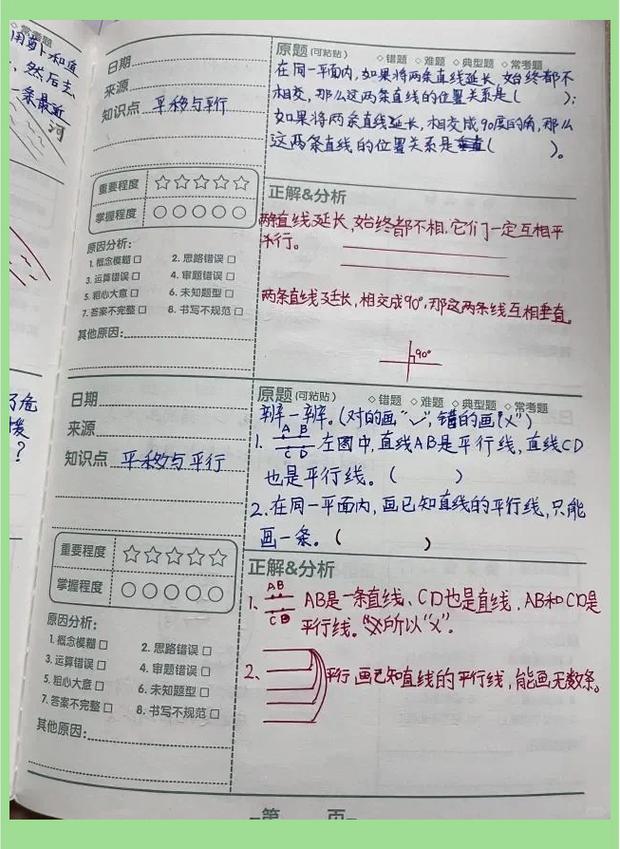 常考题
用萝卜和追
，然后去
一条最近
河
日期
来源
知识点 平移与平行
原题(可粘贴) ◇错题 ◇难题 ◇典型题 ◇常考题
在同一平面内,如果将两条直线延长,始终都不
相交,那么这两条直线的位置关系是( );
如果将两条直线延长,相交成90度的角,那么
这两条直线的位置关系是( )。
重要程度 ☆☆☆☆☆
掌握程度 ○○○○○
正解&分析
两条直线延长,始终都不相.它们一定互相平
行。
两条直线延长,相交成90°,那这两条线互相垂直。
90°
原因分析:
1. 概念模糊 □ 2. 思路错误 □
3. 运算错误 □ 4. 审题错误 □
5. 粗心大意 □ 6. 未知题型 □
7. 答案不完整 □ 8. 书写不规范 □
其他原因:
了危
拨
?
日期
来源
知识点 平移与平行
原题(可粘贴) ◇错题 ◇难题 ◇典型题 ◇常考题
辨一辨。(对的画"✓",错的画"X")
1. A B C D 左图中,直线AB是平行线,直线CD
也是平行线。( )
2.在同一平面内,画已知直线的平行线,只能
画一条。( )
重要程度 ☆☆☆☆☆
掌握程度 ○○○○○
正解&分析
1. AB CD AB是一条直线、CD也是直线,AB和CD是
平行线。所以"X"。
2. 平行 画已知直线的平行线,能画无数条。
原因分析:
1. 概念模糊 □ 2. 思路错误 □
3. 运算错误 □ 4. 审题错误 □
5. 粗心大意 □ 6. 未知题型 □
7. 答案不完整 □ 8. 书写不规范 □
其他原因:
第 页